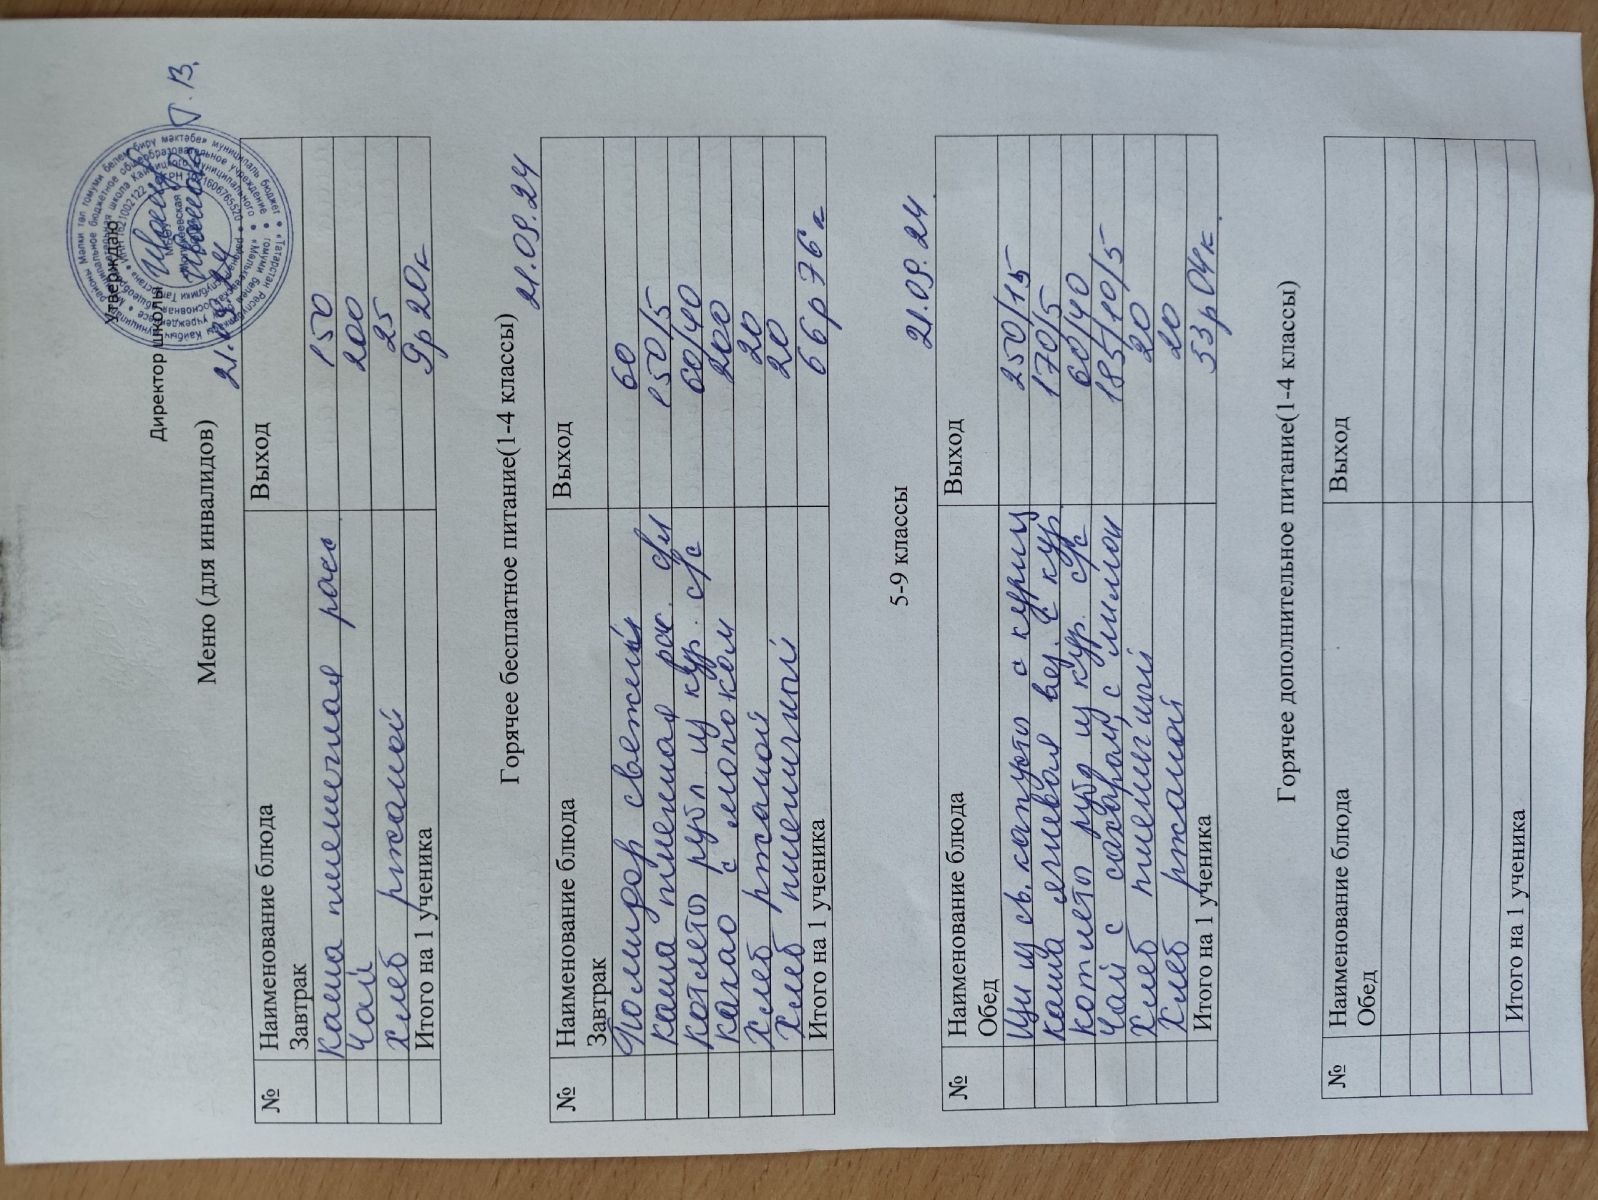 Утверждаю
Директор школы
Т. В.
21.09.24
Меню (для инвалидов)
№ Наименование блюда Выход
Завтрак
Каша пшеничная расс 150
Чай 200
Хлеб ржаной 25
Итого на 1 ученика 9р 20к
Горячее бесплатное питание(1-4 классы) 21.09.24
№ Наименование блюда Выход
Завтрак
Помидор свежий 60
Каша пшенная рас. 150/5
Котлеты рубл. из кур. с/с 60/40
Какао с молоком 200
Хлеб ржаной 20
Хлеб пшеничный 20
Итого на 1 ученика 66р 76к
5-9 классы 21.09.24
№ Наименование блюда Выход
Обед
Щи из св. капусты с куриц 250/15
Каша ячневая вяз. с кур 170/5
Котлеты рубл из кур. с/с 60/40
Чай с сахаром, с лимон 185/10/5
Хлеб пшеничный 20
Хлеб ржаной 20
Итого на 1 ученика 53р 04к.
Горячее дополнительное питание(1-4 классы)
№ Наименование блюда Выход
Обед
Итого на 1 ученика